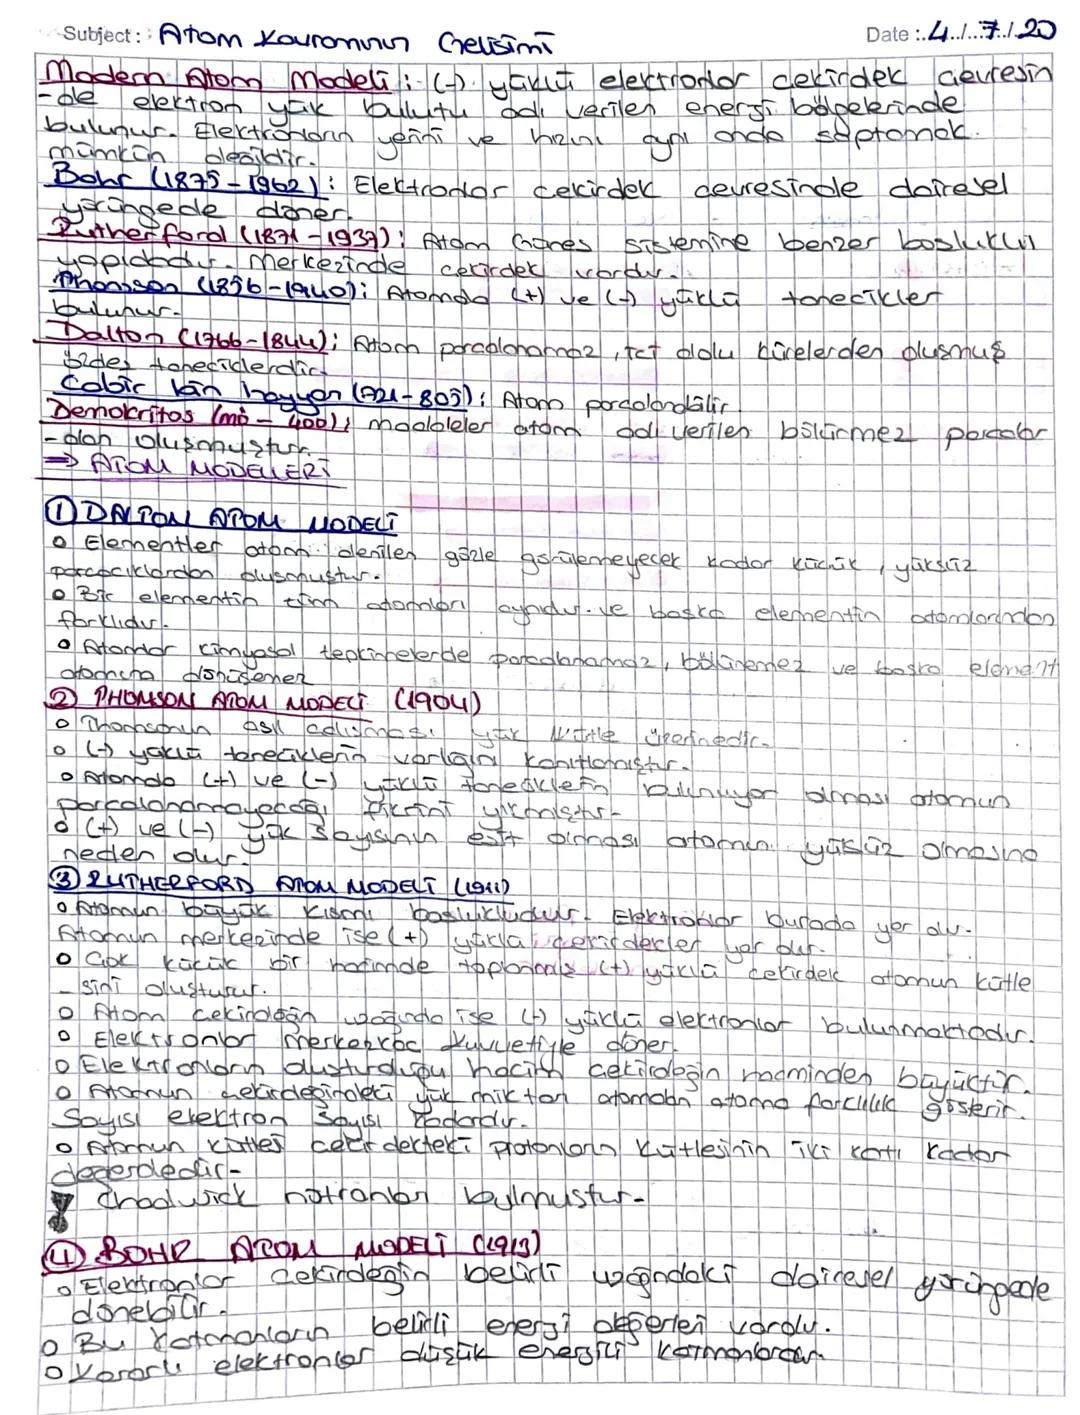 Subject: Atom Kavramının Gelişimi Date: 4/7/20
Modern Atom Modeli: (-) yüklü elektronlar çekirdek çevresin
-de elektron yük bulutu adı verilen enerji bölgelerinde
bulunur. Elektronların yerini ve hızını aynı anda saptamak
mümkün değildir.
Bohr (1875-1962): Elektronlar çekirdek çevresinde dairesel
yörüngede döner.
Rutherford (1871-1937): Atom Güneş sistemine benzer boşluklu
yapıdadır. Merkezinde çekirdek vardır.
Thomson (1856-1940): Atomda (+) ve (-) yüklü tanecikler
bulunur.
Dalton (1766-1844): Atom parçalanamaz, içi dolu kürelerden oluşmuş
taneciklerdir.
Cabir bin hayyan (721-805): Atom parçalanabilir.
Demokritos (mö - 400): maddeler atom adı verilen bölünmez parçalar
-dan oluşmuştur.
⇒ ATOM MODELLERİ
① DALTON ATOM MODELİ
o Elementler atom denilen gözle görülemeyecek kadar küçük, yüksüz
parçacıklardan oluşmuştur.
o Bir elementin tüm atomları aynıdır. ve başka elementin atomlarından
farklıdır.
o Atomlar kimyasal tepkimelerde parçalanamaz, bölünemez ve başka element
atomuna dönüşemez
② THOMSON ATOM MODELİ (1904)
o Thomsonun asıl çalışması yük kütle üzerinedir.
o (-) yüklü taneciklerin varlığını kanıtlamıştır.
o Atomda (+) ve (-) yüklü taneciklerin bulunuyor olması atomun
parçalanamayacağı fikrini yıkmıştır.
o (+) ve (-) yük sayısının eşit olması atomun yüksüz olmasına
neden olur.
③ RUTHERFORD ATOM MODELİ (1911)
o Atomun büyük kısmı boşlukludur. Elektronlar burada yer alır.
Atomun merkezinde ise (+) yüklü çekirdekler yer alır.
o Çok küçük bir hacimde toplanmış (+) yüklü çekirdek atomun kütle
-sini oluşturur.
o Atom çekirdeğin uzağında ise (-) yüklü elektronlar bulunmaktadır.
o Elektronlar merkezkaç kuvvetiyle döner.
o Elektronların oluşturduğu hacim çekirdeğin hacminden büyüktür.
o Atomun çekirdeğindeki yük miktarı atomdan atoma farklılık gösterir.
Sayısı elektron sayısı kadardır.
o Atomun kütlesi çekirdekteki protonların kütlesinin iki katı kadar
değerdedir-
Chadwick nötronları bulmuştur-
④ BOHR ATOM MODELİ (1913)
o Elektronlar çekirdeğin belirli uzağındaki dairesel yörüngede
dönebilir.
o Bu katmanların belirli enerji değerleri vardır.
o Kararlı elektronlar düşük enerjili katmanlardan